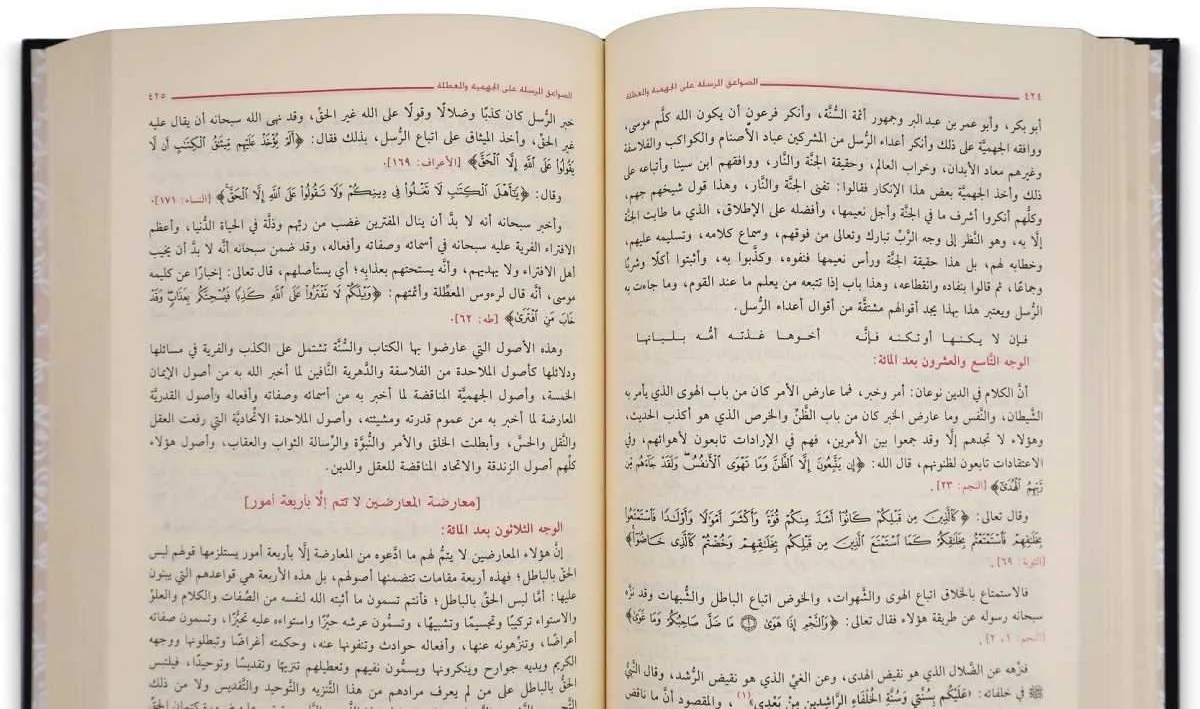 ٤٢٤ الصواعق المرسلة على الجهمية والمعطلة
أبو بكر، وأبو عمر بن عبد البر وجمهور أئمة السُّنَّة، وأنكر فرعون أن يكون الله كلَّم موسى،
ووافقه الجهميَّة على ذلك وأنكر أعداء الرُّسل من المشركين عباد الأصنام والكواكب والفلاسفة
وغيرهم معاد الأبدان، وخراب العالم، وحقيقة الجنَّة والنَّار، ووافقهم ابن سينا وأتباعه على
ذلك وأخذ الجهميَّة بعض هذا الإنكار فقالوا: تفنى الجنَّة والنَّار، وهذا قول شيخهم جهم،
وكلُّهم أنكروا أشرف ما في الجنَّة وأجل نعيمها، وأفضله على الإطلاق، الذي ما طابت الجنَّة
إلَّا به، وهو النَّظر إلى وجه الرَّبِّ تبارك وتعالى من فوقهم، وسماع كلامه، وتسليمه عليهم،
وخطابه لهم، بل هذا حقيقة الجنَّة ورأس نعيمها فنفوه، وكذَّبوا به، وأثبتوا أكلًا وشربًا
وجماعًا، ثم قالوا بنفاده وانقطاعه، وهذا باب إذا تتبعه من يعلم ما عند القوم، وما جاءت به
الرُّسل ويعتبر هذا بهذا يجد أقوالهم مشتقَّة من أقوال أعداء الرُّسل.
فإن لا يكنها أو تكنه فإنَّه أخوها غذته أمُّه بلبانها
الوجه التَّاسع والعشرون بعد المائة:
أنَّ الكلام في الدين نوعان: أمر وخبر، فما عارض الأمر كان من باب الهوى الذي يأمر به
الشَّيطان، والنَّفس وما عارض الخبر كان من باب الظَّنِّ والخرص الذي هو أكذب الحديث،
وهؤلاء لا تجدهم إلَّا وقد جمعوا بين الأمرين، فهم في الإرادات تابعون لأهوائهم، وفي
الاعتقادات تابعون لظنونهم، قال الله: ﴿إِن يَتَّبِعُونَ إِلَّا ٱلظَّنَّ وَمَا تَهْوَى ٱلْأَنفُسُ ۖ وَلَقَدْ جَآءَهُم مِّن
رَّبِّهِمُ ٱلْهُدَىٰٓ﴾ [النجم: ٢٣].
وقال تعالى: ﴿كَٱلَّذِينَ مِن قَبْلِكُمْ كَانُوٓا۟ أَشَدَّ مِنكُمْ قُوَّةً وَأَكْثَرَ أَمْوَٰلًا وَأَوْلَـٰدًا فَٱسْتَمْتَعُوا۟
بِخَلَـٰقِهِمْ فَٱسْتَمْتَعْتُم بِخَلَـٰقِكُمْ كَمَا ٱسْتَمْتَعَ ٱلَّذِينَ مِن قَبْلِكُم بِخَلَـٰقِهِمْ وَخُضْتُمْ كَٱلَّذِى خَاضُوٓا۟﴾
[التوبة: ٦٩].
فالاستمتاع بالخلاق اتباع الهوى والشَّهوات، والخوض اتباع الباطل والشُّبهات وقد نزَّه
سبحانه رسوله عن طريقة هؤلاء فقال تعالى: ﴿وَٱلنَّجْمِ إِذَا هَوَىٰ ۝١ مَا ضَلَّ صَاحِبُكُمْ وَمَا غَوَىٰ﴾
[النجم: ١، ٢].
فنزهه عن الضَّلال الذي هو نقيض الهدى، وعن الغيِّ الذي هو نقيض الرُّشد، وقال النَّبيُّ
ﷺ في خلفائه: «عَلَيْكُم بِسُنَّتِي وَسُنَّةِ الْخُلَفَاءِ الرَّاشِدِينَ مِنْ بَعْدِي»(١)، والمقصود أنَّ ما ناقض
الصواعق المرسلة على الجهمية والمعطلة ٤٢٥
خبر الرُّسل كان كذبًا وضلالًا وقولًا على الله غير الحقِّ، وقد نهى الله سبحانه أن يقال عليه
غير الحقِّ، وأخذ الميثاق على اتباع الرُّسل، بذلك فقال: ﴿أَلَمْ يُؤْخَذْ عَلَيْهِم مِّيثَـٰقُ ٱلْكِتَـٰبِ أَن لَّا
يَقُولُوا۟ عَلَى ٱللَّهِ إِلَّا ٱلْحَقَّ﴾ [الأعراف: ١٦٩].
وقال: ﴿يَـٰٓأَهْلَ ٱلْكِتَـٰبِ لَا تَغْلُوا۟ فِى دِينِكُمْ وَلَا تَقُولُوا۟ عَلَى ٱللَّهِ إِلَّا ٱلْحَقَّ﴾ [النساء: ١٧١].
وأخبر سبحانه أنه لا بدَّ أن ينال المفترين غضب من ربِّهم وذلَّة في الحياة الدُّنيا، وأعظم
الافتراء الفرية عليه سبحانه في أسمائه وصفاته وأفعاله، وقد ضمن سبحانه أنَّه لا بدَّ أن يخيب
أهل الافتراء ولا يهديهم، وأنَّه يستحتهم بعذابِه؛ أي يستأصلهم، قال تعالى: إخبارًا عن كليمه
موسى، أنَّه قال لرءوس المعطِّلة وأئمتهم: ﴿وَيْلَكُمْ لَا تَفْتَرُوا۟ عَلَى ٱللَّهِ كَذِبًا فَيُسْحِتَكُم بِعَذَابٍ ۖ وَقَدْ
خَابَ مَنِ ٱفْتَرَىٰ﴾ [طه: ٦٢].
وهذه الأصول التي عارضوا بها الكتاب والسُّنَّة تشتمل على الكذب والفرية في مسائلها
ودلائلها كأصول الملاحدة من الفلاسفة والدَّهرية النَّافين لما أخبر الله به من أصول الإيمان
الخمسة، وأصول الجهميَّة المناقضة لما أخبر به من أسمائه وصفاته وأفعاله وأصول القدريَّة
المعارضة لما أخبر به من عموم قدرته ومشيئته، وأصول الملاحدة الاتِّحاديَّة التي رفعت العقل
والنَّقل والحسَّ، وأبطلت الخلق والأمر والنُّبوَّة والرِّسالة الثواب والعقاب، وأصول هؤلاء
كلُّهم أصول الزندقة والاتحاد المناقضة للعقل والدين.
[معارضة المعارضين لا تتم إلَّا بأربعة أمور]
الوجه الثلاثون بعد المائة:
إنَّ هؤلاء المعارضين لا يتمُّ لهم ما ادَّعوه من المعارضة إلَّا بأربعة أمور يستلزمها قولهم لبس
الحقِّ بالباطل؛ فهذه أربعة مقامات تتضمنها أصولهم، بل هذه الأربعة هي قواعدهم التي يبنون
عليها: أمَّا لبس الحقِّ بالباطل؛ فأنتم تسمون ما أثبته الله لنفسه من الصِّفات والكلام والعلوِّ
والاستواء تركيبًا وتجسيمًا وتشبيهًا، وتسمُّون عرشه حيِّزًا واستواءه عليه تحيُّزًا، وتسمون صفاته
أعراضًا، وتنزِّهونه عنها، وأفعاله حوادث وتنفونها عنه، وحكمته أغراضًا وتبطلونها ووجهه
الكريم ويديه جوارح وينكرونها ويسمُّون نفيهم وتعطيلهم تنزيهًا وتقديسًا وتوحيدًا، فيلبس
الحقُّ بالباطل على من لم يعرف مرادهم من هذا التَّنزيه والتَّوحيد والتَّقديس ولا من ذلك